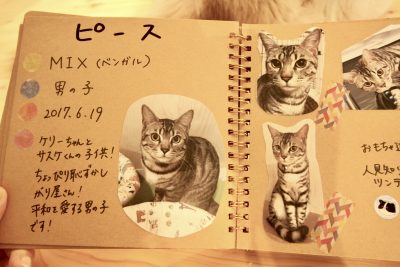 ピース
MIX (ベンガル)
男の子
2017.6.19
ケリーちゃんと
サスケくんの子供!
ちょっぴり恥ずかし
がり屋さん!
平和を愛する男の子
です!
おもちゃ
人見知り
ツンデ